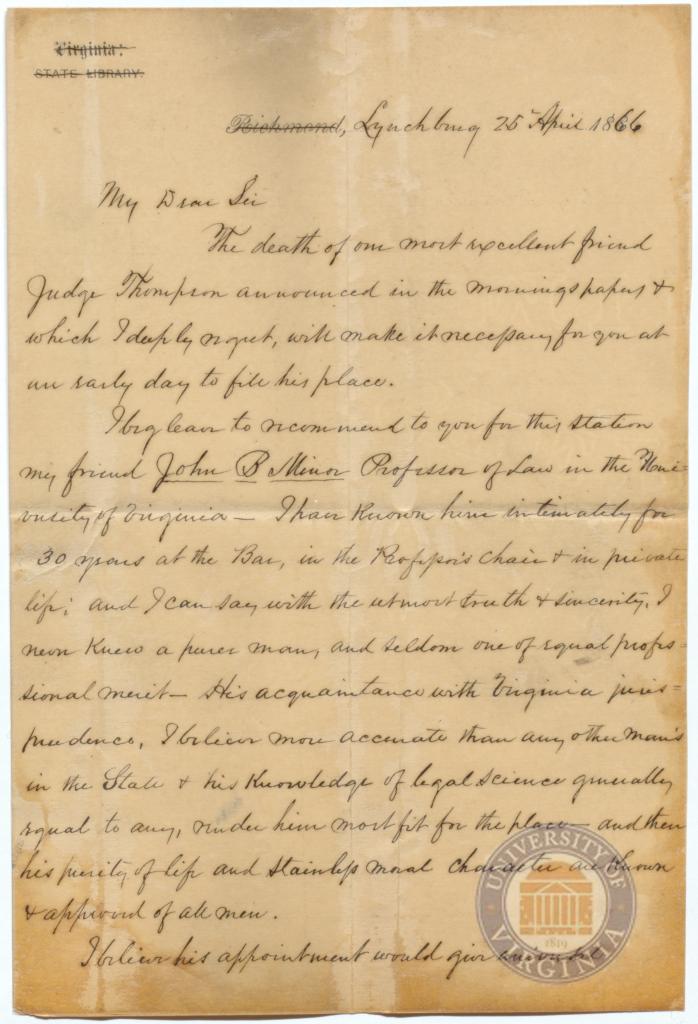 Virginia:
STATE LIBRARY.
Richmond, Lynchburg 25 April 1866
My Dear Sir
The death of our most excellent friend
Judge Thompson announced in the mornings papers &
which I deeply regret, will make it necessary for you at
an early day to fill his place.
I beg leave to recommend to you for this station
my friend John B Minor Professor of Law in the Uni=
versity of Virginia — I have known him intimately for
30 years at the Bar, in the Professor's chair & in private
life; and I can say with the utmost truth & sincerity, I
never knew a purer man, and seldom one of equal profes=
sional merit — His acquaintance with Virginia juris=
prudence, I believe more accurate than any other man's
in the State & his knowledge of legal science generally
equal to any, render him most fit for the place — and then
his purity of life and stainless moral character are known
& approved of all men.
I believe his appointment would give universal
UNIVERSITY OF VIRGINIA
1819